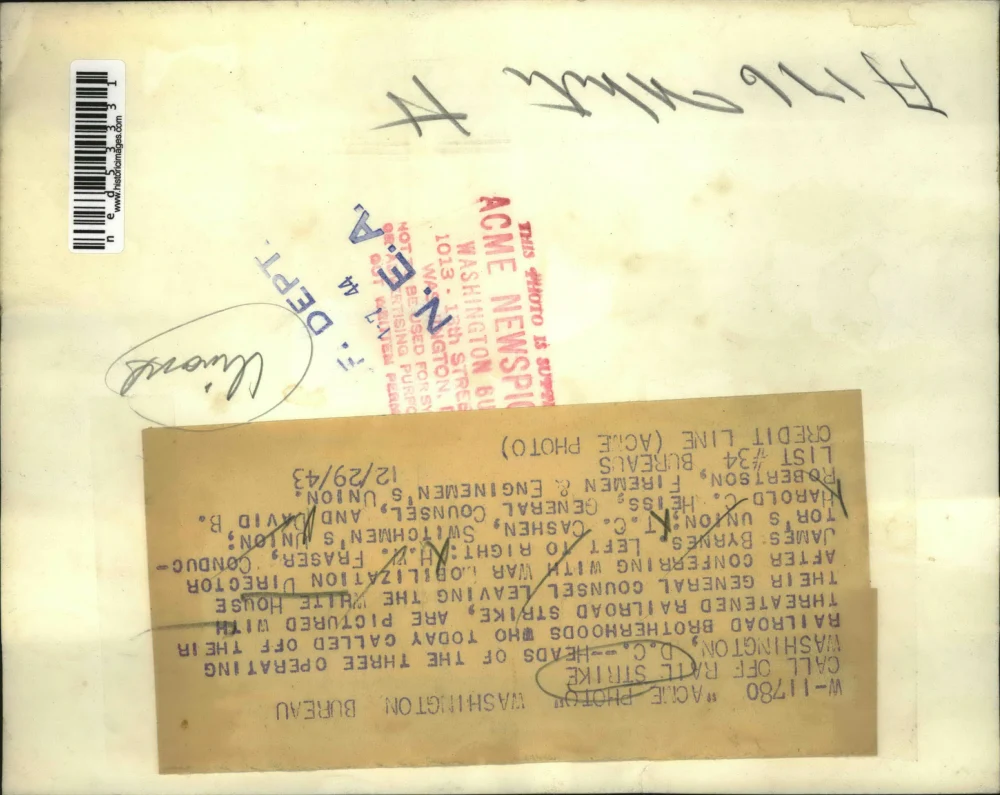 W-11780 "ACME PHOTO" WASHINGTON BUREAU
CALL OFF RAIL STRIKE
WASHINGTON, D.C.--HEADS OF THE THREE OPERATING
RAILROAD BROTHERHOODS WHO TODAY CALLED OFF THEIR
THREATENED RAILROAD STRIKE, ARE PICTURED WITH
THEIR GENERAL COUNSEL LEAVING THE WHITE HOUSE
AFTER CONFERRING WITH WAR MOBILIZATION DIRECTOR
JAMES BYRNES. LEFT TO RIGHT: H.W. FRASER, CONDUC-
TOR'S UNION; T.C. CASHEN, SWITCHMEN'S UNION;
HAROLD C. HEISS, GENERAL COUNSEL, AND DAVID B.
ROBERTSON, FIREMEN & ENGINEMEN'S UNION.
LIST #34 BUREAUS 12/29/43
CREDIT LINE (ACME PHOTO)
THIS PHOTO IS
ACME NEWSPIC
WASHINGTON BU
1013 - 13th STREE
WASHINGTON,
NOT BE USED FOR
N.E.A.
44
F. DEPT.
ned53331
www.historicimages.com